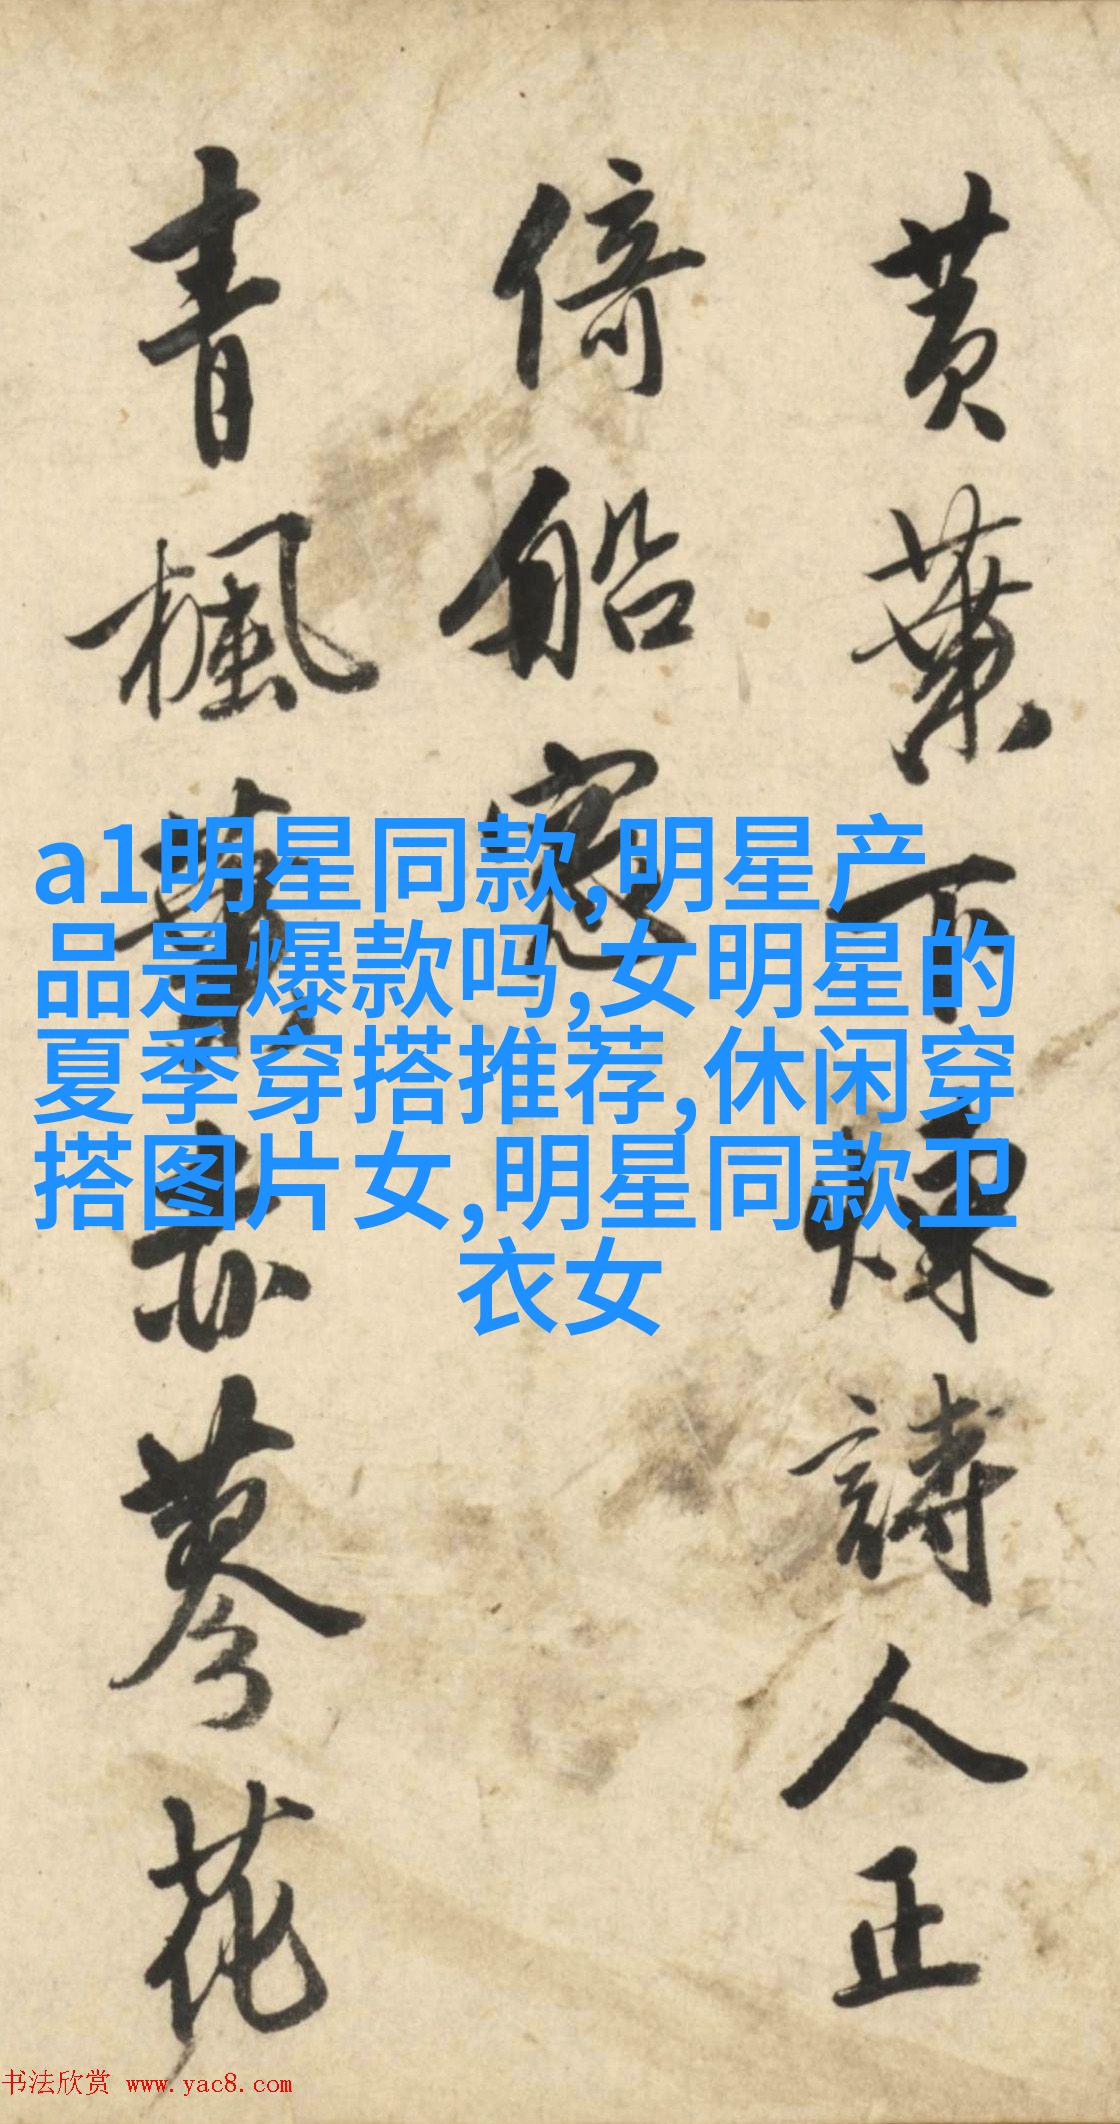 黄葉下煙詩人正
倚船窓
青楓
蓼花
a1明星同款,明星产
品是爆款吗,女明星的
夏季穿搭推荐,休闲穿
搭图片女,明星同款卫
衣女
书法欣赏 www.yac8.com